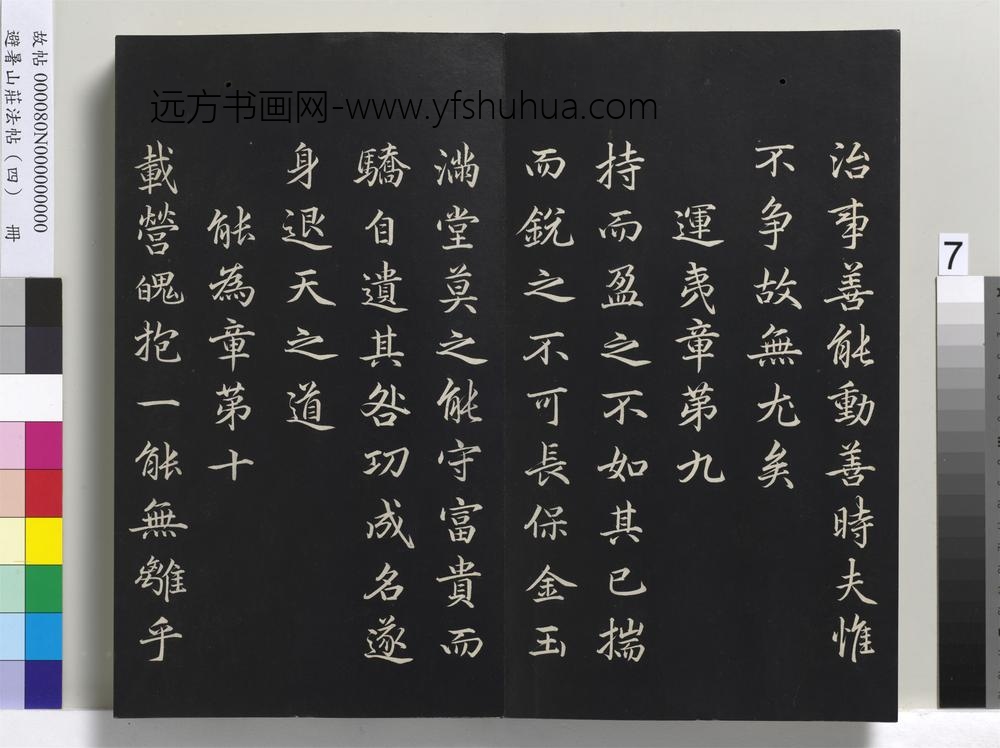 治事善能動善時夫惟
不争故無尤矣
運夷章第九
持而盈之不如其已揣
而銳之不可長保金玉
滿堂莫之能守富貴而
驕自遺其咎功成名遂
身退天之道
能為章第十
載營魄抱一能無離乎
远方书画网-www.yfshuhua.com
故帖 000080N000000000
避暑山莊法帖（四） 冊
7